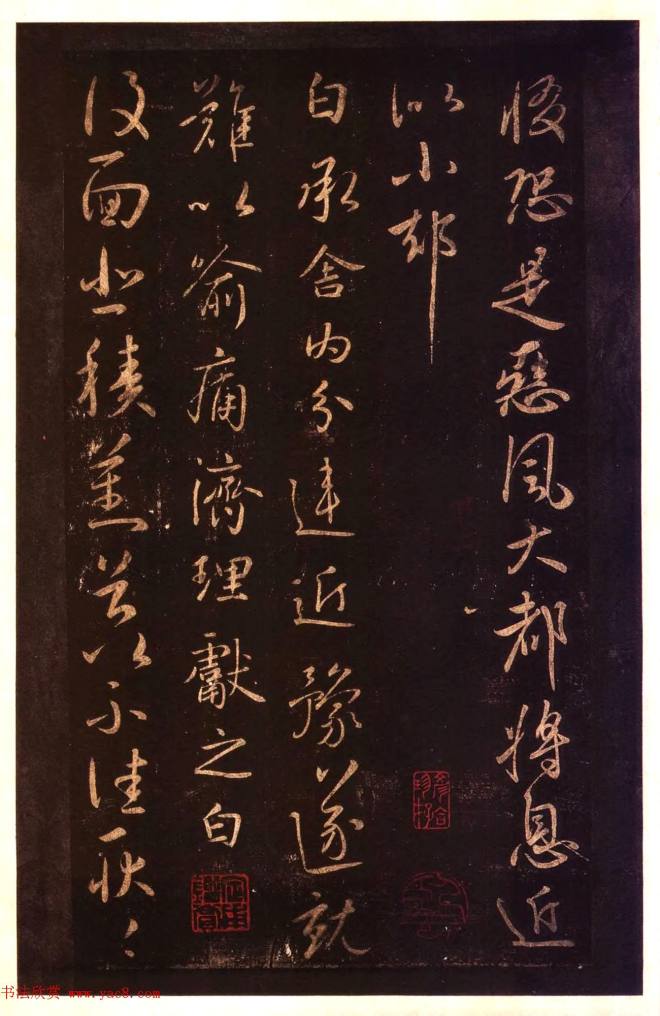 後恐是惡風大都將息近
以小却
白承舍內分違近豫遂就
難以喻痛濟理獻之白
復面悲積羔有以不佳耿〻
书法欣赏 www.yac8.com